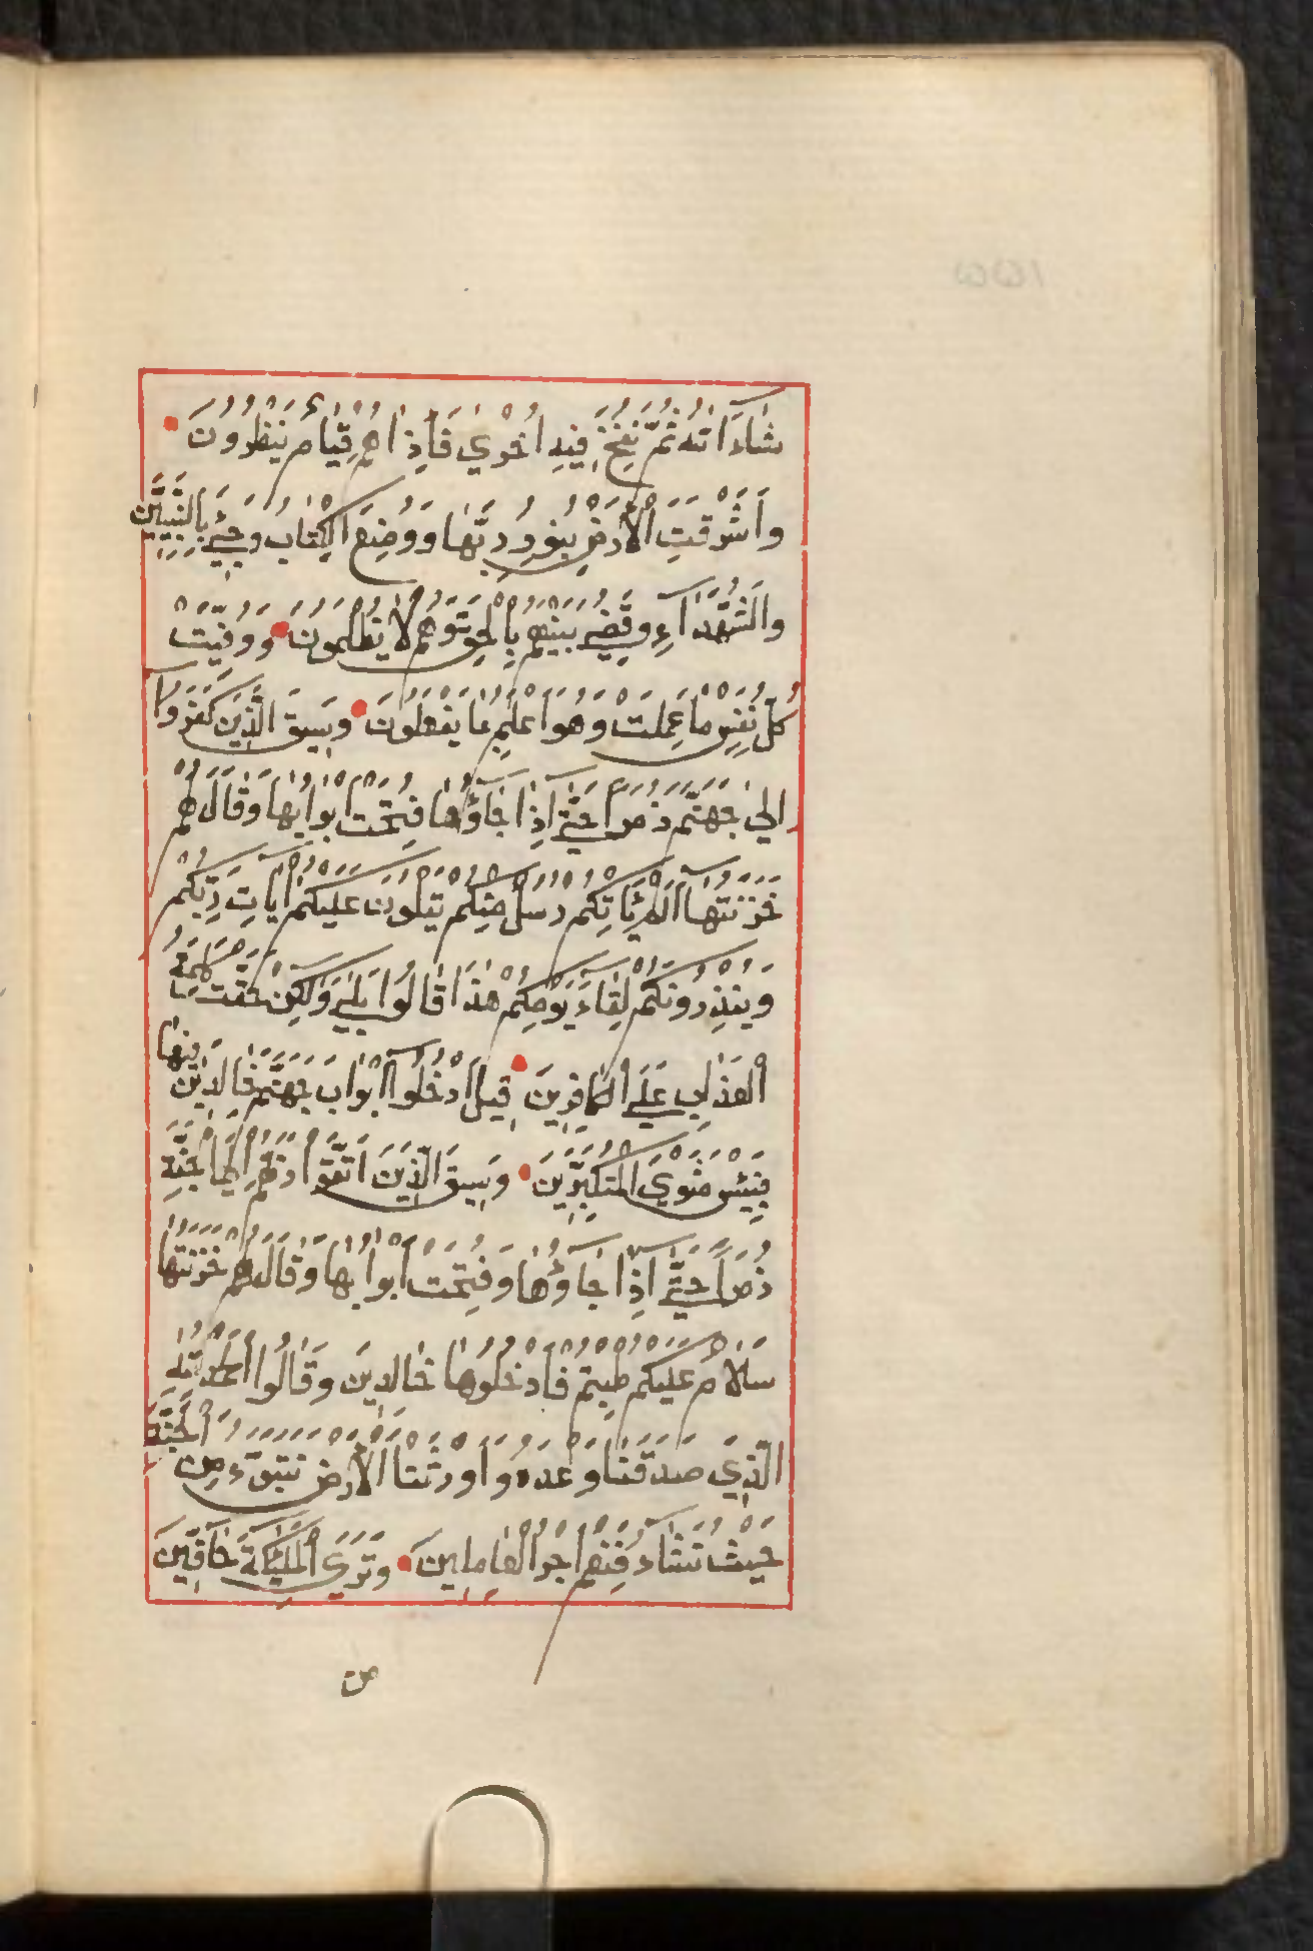 شَاءَ اللهُ ثُمَّ نُفِخَ فِيهِ أُخْرَي فَإِذَا هُمْ قِيَامٌ يَنْظُرُونَ
وَأَشْرَقَتِ الْأَرْضُ بِنُورِ رَبِّهَا وَوُضِعَ الْكِتَابُ وَجِيءَ بِالنَّبِيِّينَ
وَالشُّهَدَآءِ وَقُضِيَ بَيْنَهُمْ بِالْحَقِّ وَهُمْ لَا يُظْلَمُونَ وَوُفِّيَتْ
كُلُّ نَفْسٍ مَا عَمِلَتْ وَهُوَ أَعْلَمُ بِمَا يَفْعَلُونَ وَسِيقَ الَّذِينَ كَفَرُوا
إِلَي جَهَنَّمَ زُمَرًا حَتَّي إِذَا جَآؤُهَا فُتِحَتْ أَبْوَابُهَا وَقَالَ لَهُمْ
خَزَنَتُهَآ أَلَمْ يَأْتِكُمْ رُسُلٌ مِنْكُمْ يَتْلُونَ عَلَيْكُمْ آيَاتِ رَبِّكُمْ
وَيُنْذِرُونَكُمْ لِقَآءَ يَوْمِكُمْ هَذَا قَالُوا بَلَي وَلَكِنْ حَقَّتْ كَلِمَةُ
الْعَذَابِ عَلَي الْكَافِرِينَ قِيلَ ادْخُلُوآ أَبْوَابَ جَهَنَّمَ خَالِدِينَ فِيهَا
فَبِئْسَ مَثْوَي الْمُتَكَبِّرِينَ وَسِيقَ الَّذِينَ اتَّقَوْا رَبَّهُمْ إِلَي الْجَنَّةِ
زُمَرًا حَتَّي إِذَا جَآؤُهَا وَفُتِحَتْ أَبْوَابُهَا وَقَالَ لَهُمْ خَزَنَتُهَا
سَلَامٌ عَلَيْكُمْ طِبْتُمْ فَادْخُلُوهَا خَالِدِينَ وَقَالُوا الْحَمْدُ لِلهِ
الَّذِي صَدَقَنَا وَعْدَهُ وَأَوْرَثَنَا الْأَرْضَ نَتَبَوَّءُ مِنَ الْجَنَّةِ
حَيْثُ نَشَآءُ فَنِعْمَ أَجْرُ الْعَامِلِينَ وَتَرَي الْمَلَئِكَةَ حَآفِّينَ
من